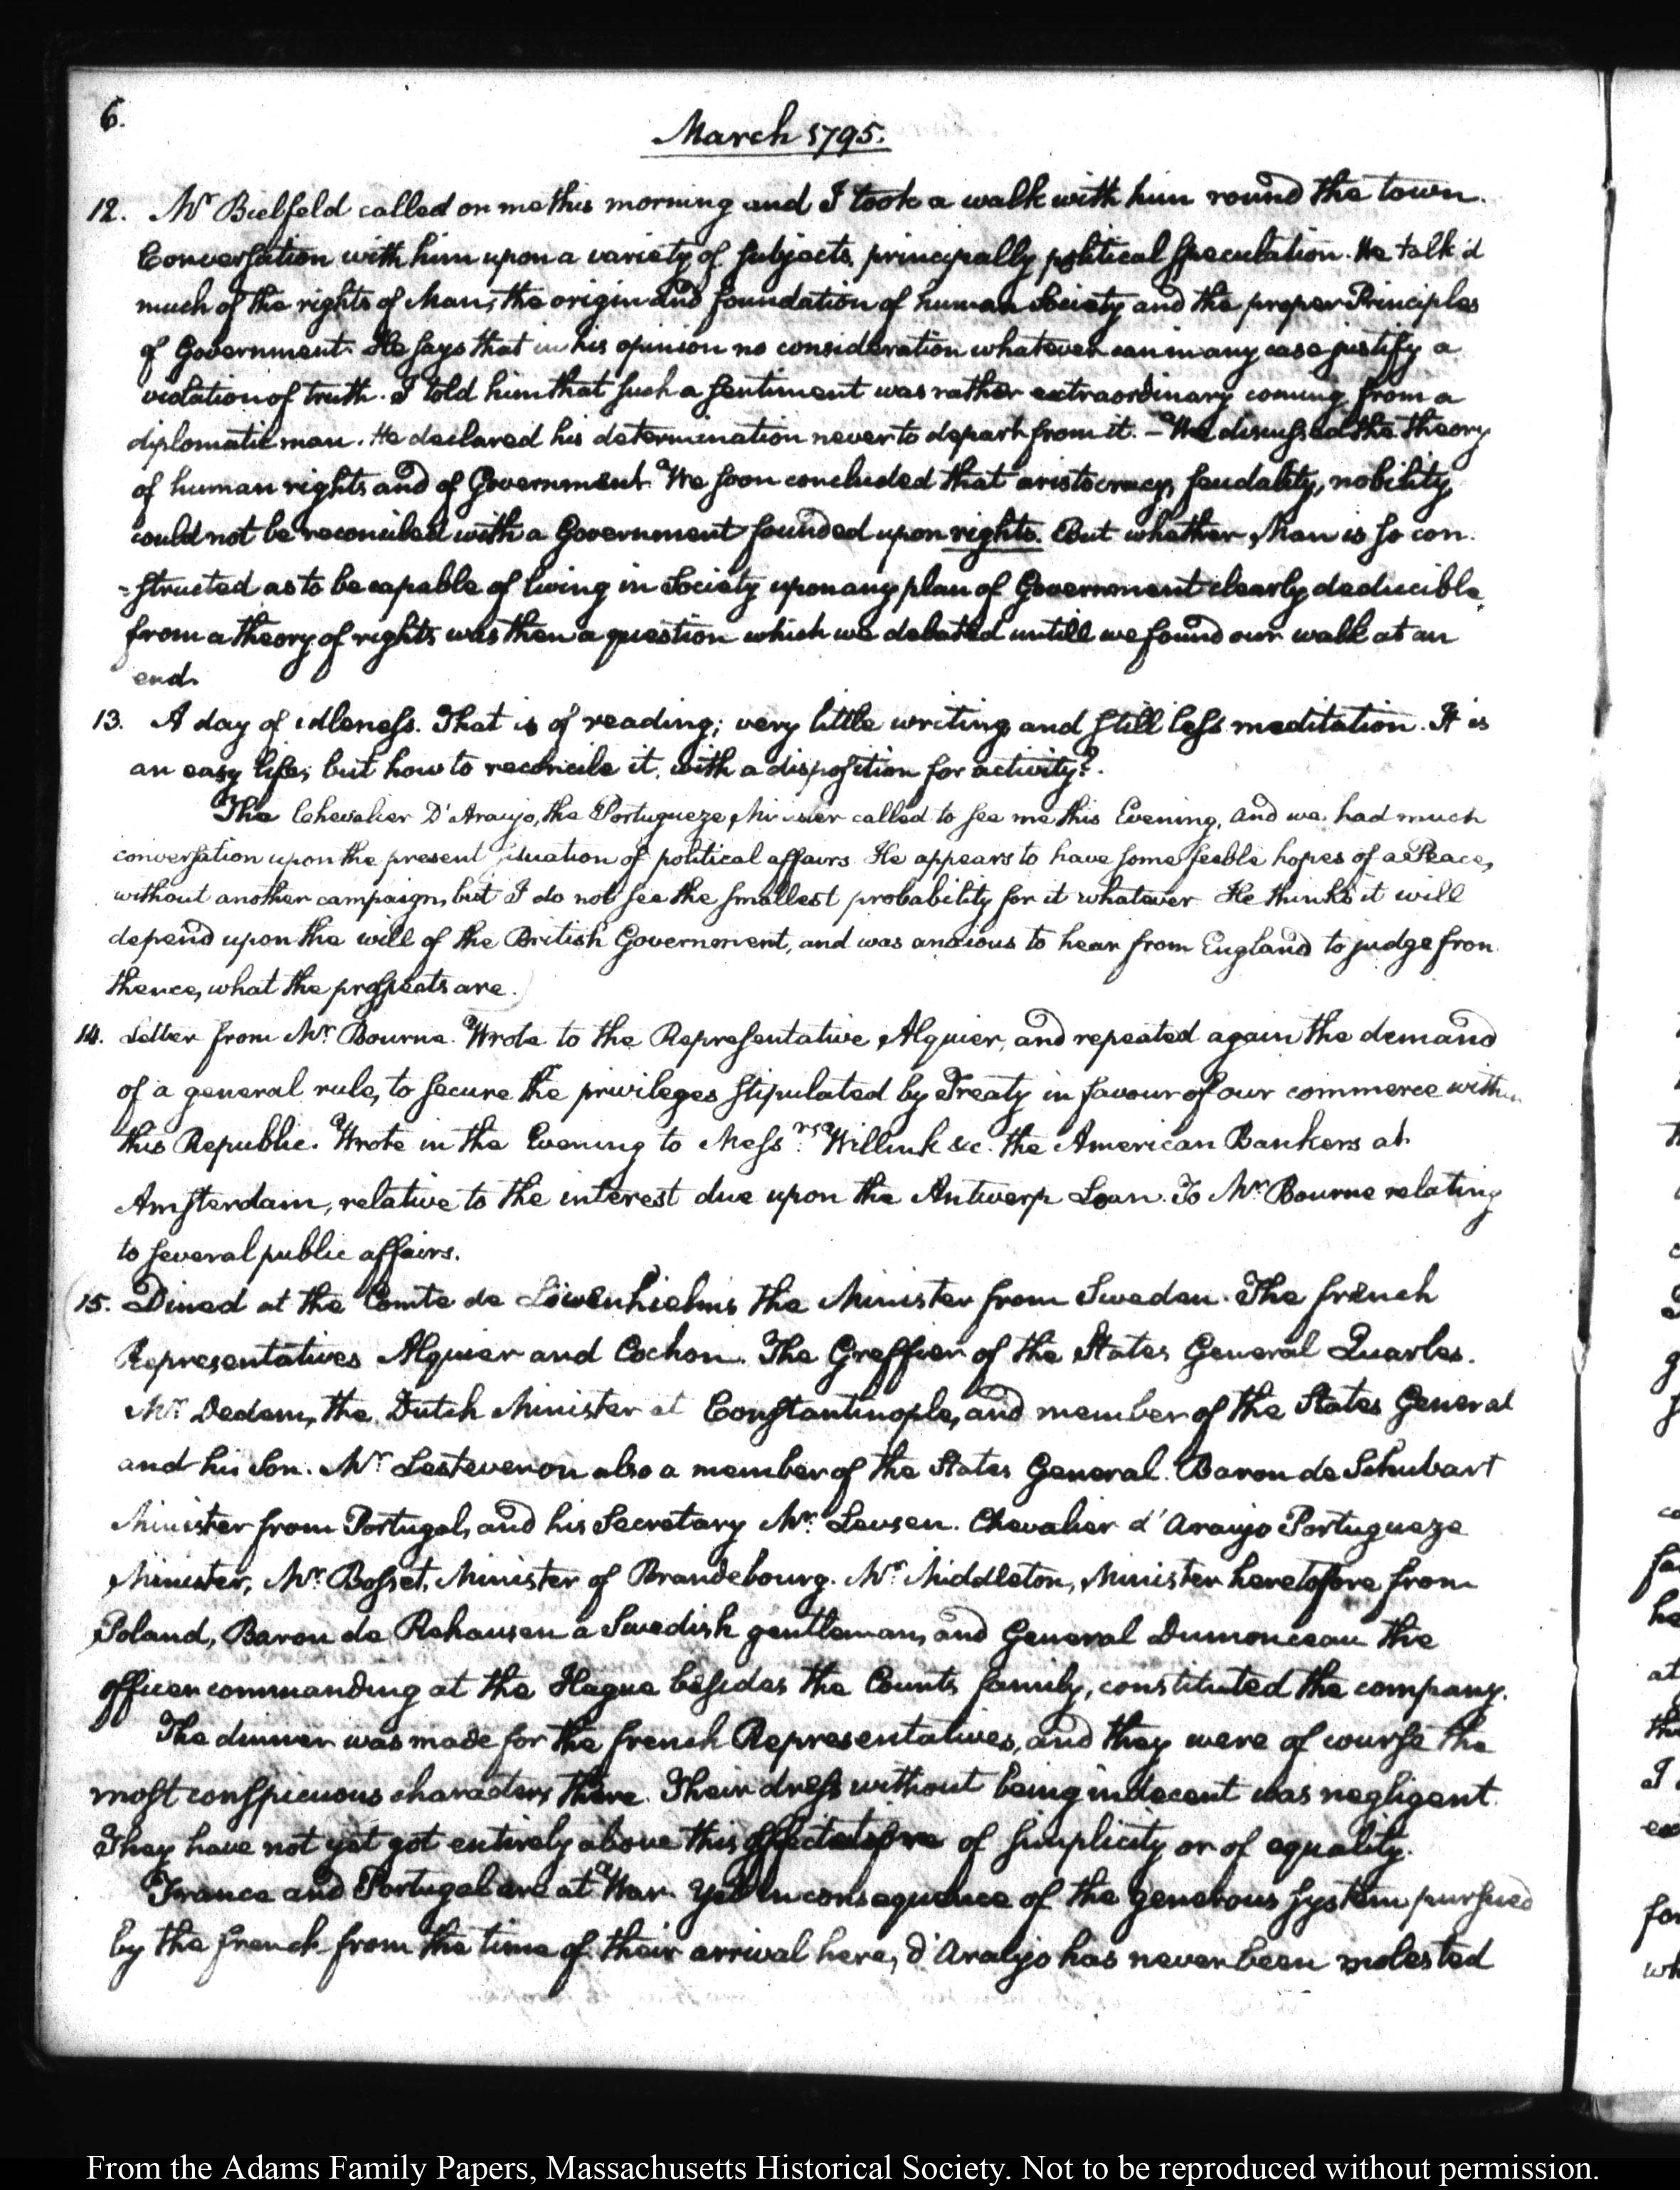 6.
March 1795.
12. Mr Bielfeld called on me this morning and I took a walk with him round the town.
Conversation with him upon a variety of subjects, principally political speculation. He talk'd
much of the rights of Man, the origin and foundation of human Society and the proper Principles
of Government. He says that in his opinion no consideration whatever can in any case justify a
violation of truth. I told him that such a sentiment was rather extraordinary coming from a
diplomatic man. He declared his determination never to depart from it. — We discussed the theory
of human rights and of Government. We soon concluded that aristocracy, feudality, nobility,
could not be reconciled with a Government founded upon rights. But whether Man is so con
=structed as to be capable of living in Society upon any plan of Government clearly deducible
from a theory of rights was then a question which we debated untill we found our walk at an
end.
13. A day of idleness. That is of reading; very little writing and still less meditation. It is
an easy life; but how to reconcile it, with a disposition for activity?
The Chevalier D'Araujo, the Portugueze Minister called to see me this Evening, and we had much
conversation upon the present situation of political affairs. He appears to have some feeble hopes of a Peace,
without another campaign, but I do not see the smallest probability for it whatever. He thinks it will
depend upon the will of the British Government, and was anxious to hear from England to judge from
thence, what the prospects are.
14. Letter from Mr. Bourne. Wrote to the Representative Alquier, and repeated again the demand
of a general rule, to secure the privileges stipulated by Treaty in favour of our commerce within
this Republic. Wrote in the Evening to Messrs. Willink &c. the American Bankers at
Amsterdam, relative to the interest due upon the Antwerp Loan. To Mr. Bourne relating
to several public affairs.
15. Dined at the Comte de Löwenhielm's the Minister from Sweden. The french
Representatives Alquier and Cochon. The Greffier of the States General Quarles.
Mr. Dedem, the Dutch Minister at Constantinople, and member of the States General
and his Son. Mr. Lestevenon also a member of the States General. Baron de Schubart
Minister from Portugal, and his Secretary Mr. Levsen. Chevalier d'Araujo Portugueze
Minister, Mr. Bosset, Minister of Brandebourg. Mr. Middleton, Minister heretofore from
Poland, Baron de Rehausen a Swedish gentleman, and General Dumonceau the
officer commanding at the Hague besides the Counts family, constituted the company.
The dinner was made for the french Representatives, and they were of course the
most conspicuous characters there. Their dress without being indecent was negligent.
They have not yet got entirely above this affectation of simplicity or of equality.
France and Portugal are at War. Yet in consequence of the generous system pursued
by the french from the time of their arrival here, d'Araujo has never been molested
From the Adams Family Papers, Massachusetts Historical Society. Not to be reproduced without permission.